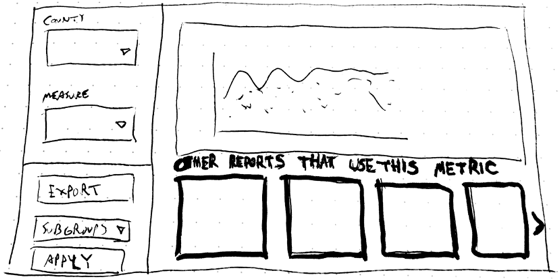 COUNTY
MEASURE
EXPORT
SUBGROUPS
APPLY
OTHER REPORTS THAT USE THIS METRIC